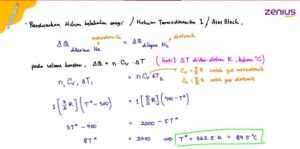 zenius
- Berdasarkan Hukum kekekalan energi / Hukum Termodinamika I / Asas Black,
ΔQ diterima He = ΔQ dilepas N₂
monoatomik diatomik
pada volume konstan, ΔQ = n . Cv . ΔT (hati² ΔT diukur dalam K, bukan °C)
n, Cv, ΔT₁ = n Cv₂ ΔT₂
Cv = 3/2 R untuk gas monoatomik
Cv = 5/2 R untuk gas diatomik
1 [3/2 R] (T* - 300) = 1 [5/2 R] (400 - T*)
3T* - 900 = 2000 - 5T*
8T* = 2900 ⇒ T* = 362.5 K = 89.5°C